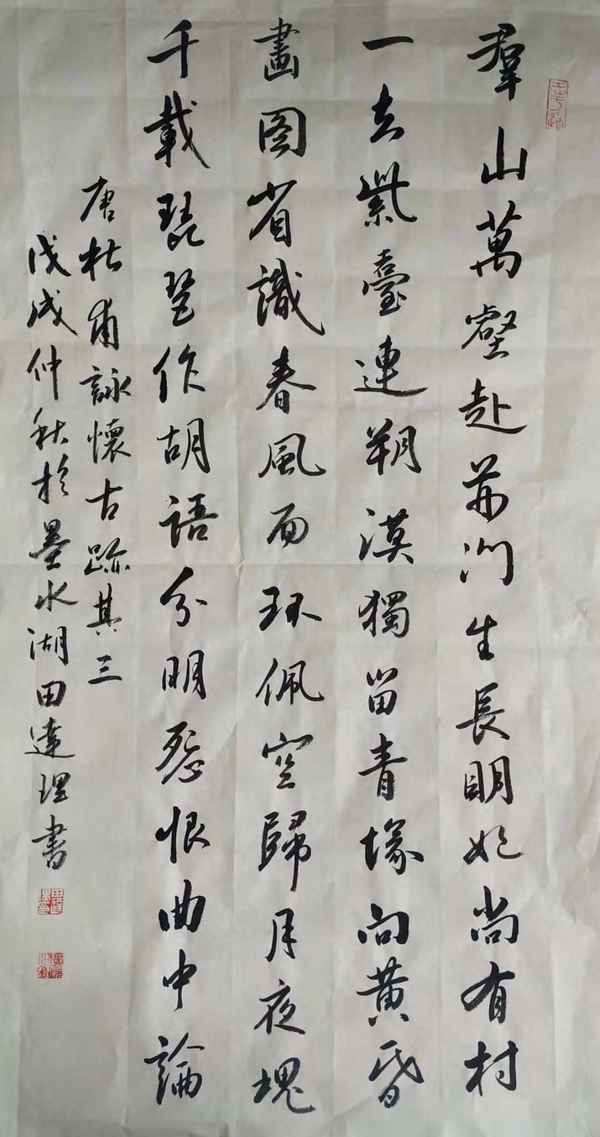 羣山萬壑赴荊門生長明妃尚有村
一去紫臺連朔漠獨留青塚向黃昏
畫圖省識春風面環佩空歸月夜魂
千載琵琶作胡語分明怨恨曲中論
唐杜甫詠懷古跡其三
戊戌仲秋於墨水湖田達理書